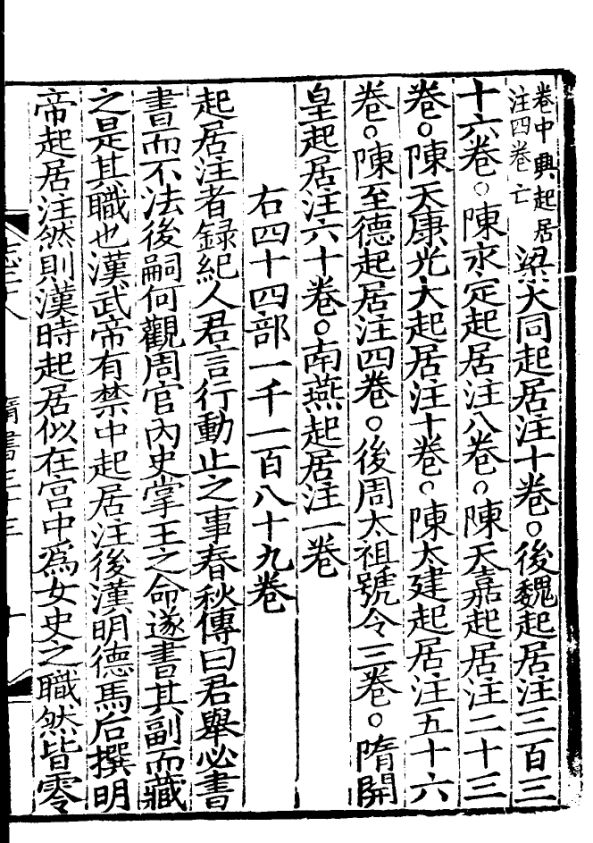 卷中興起居
注四卷亡
梁大同起居注十卷。後魏起居注三百三
十六卷。陳永定起居注八卷。陳天嘉起居注二十三
卷。陳天康光大起居注十卷。陳太建起居注五十六
卷。陳至德起居注四卷。後周太祖號令三卷。隋開
皇起居注六十卷。南燕起居注一卷
右四十四部一千一百八十九卷
起居注者錄紀人君言行動止之事春秋傳曰君舉必書
書而不法後嗣何觀周官內史掌王之命遂書其副而藏
之是其職也漢武帝有禁中起居注後漢明德馬后撰明
帝起居注然則漢時起居似在宮中爲女史之職然皆零